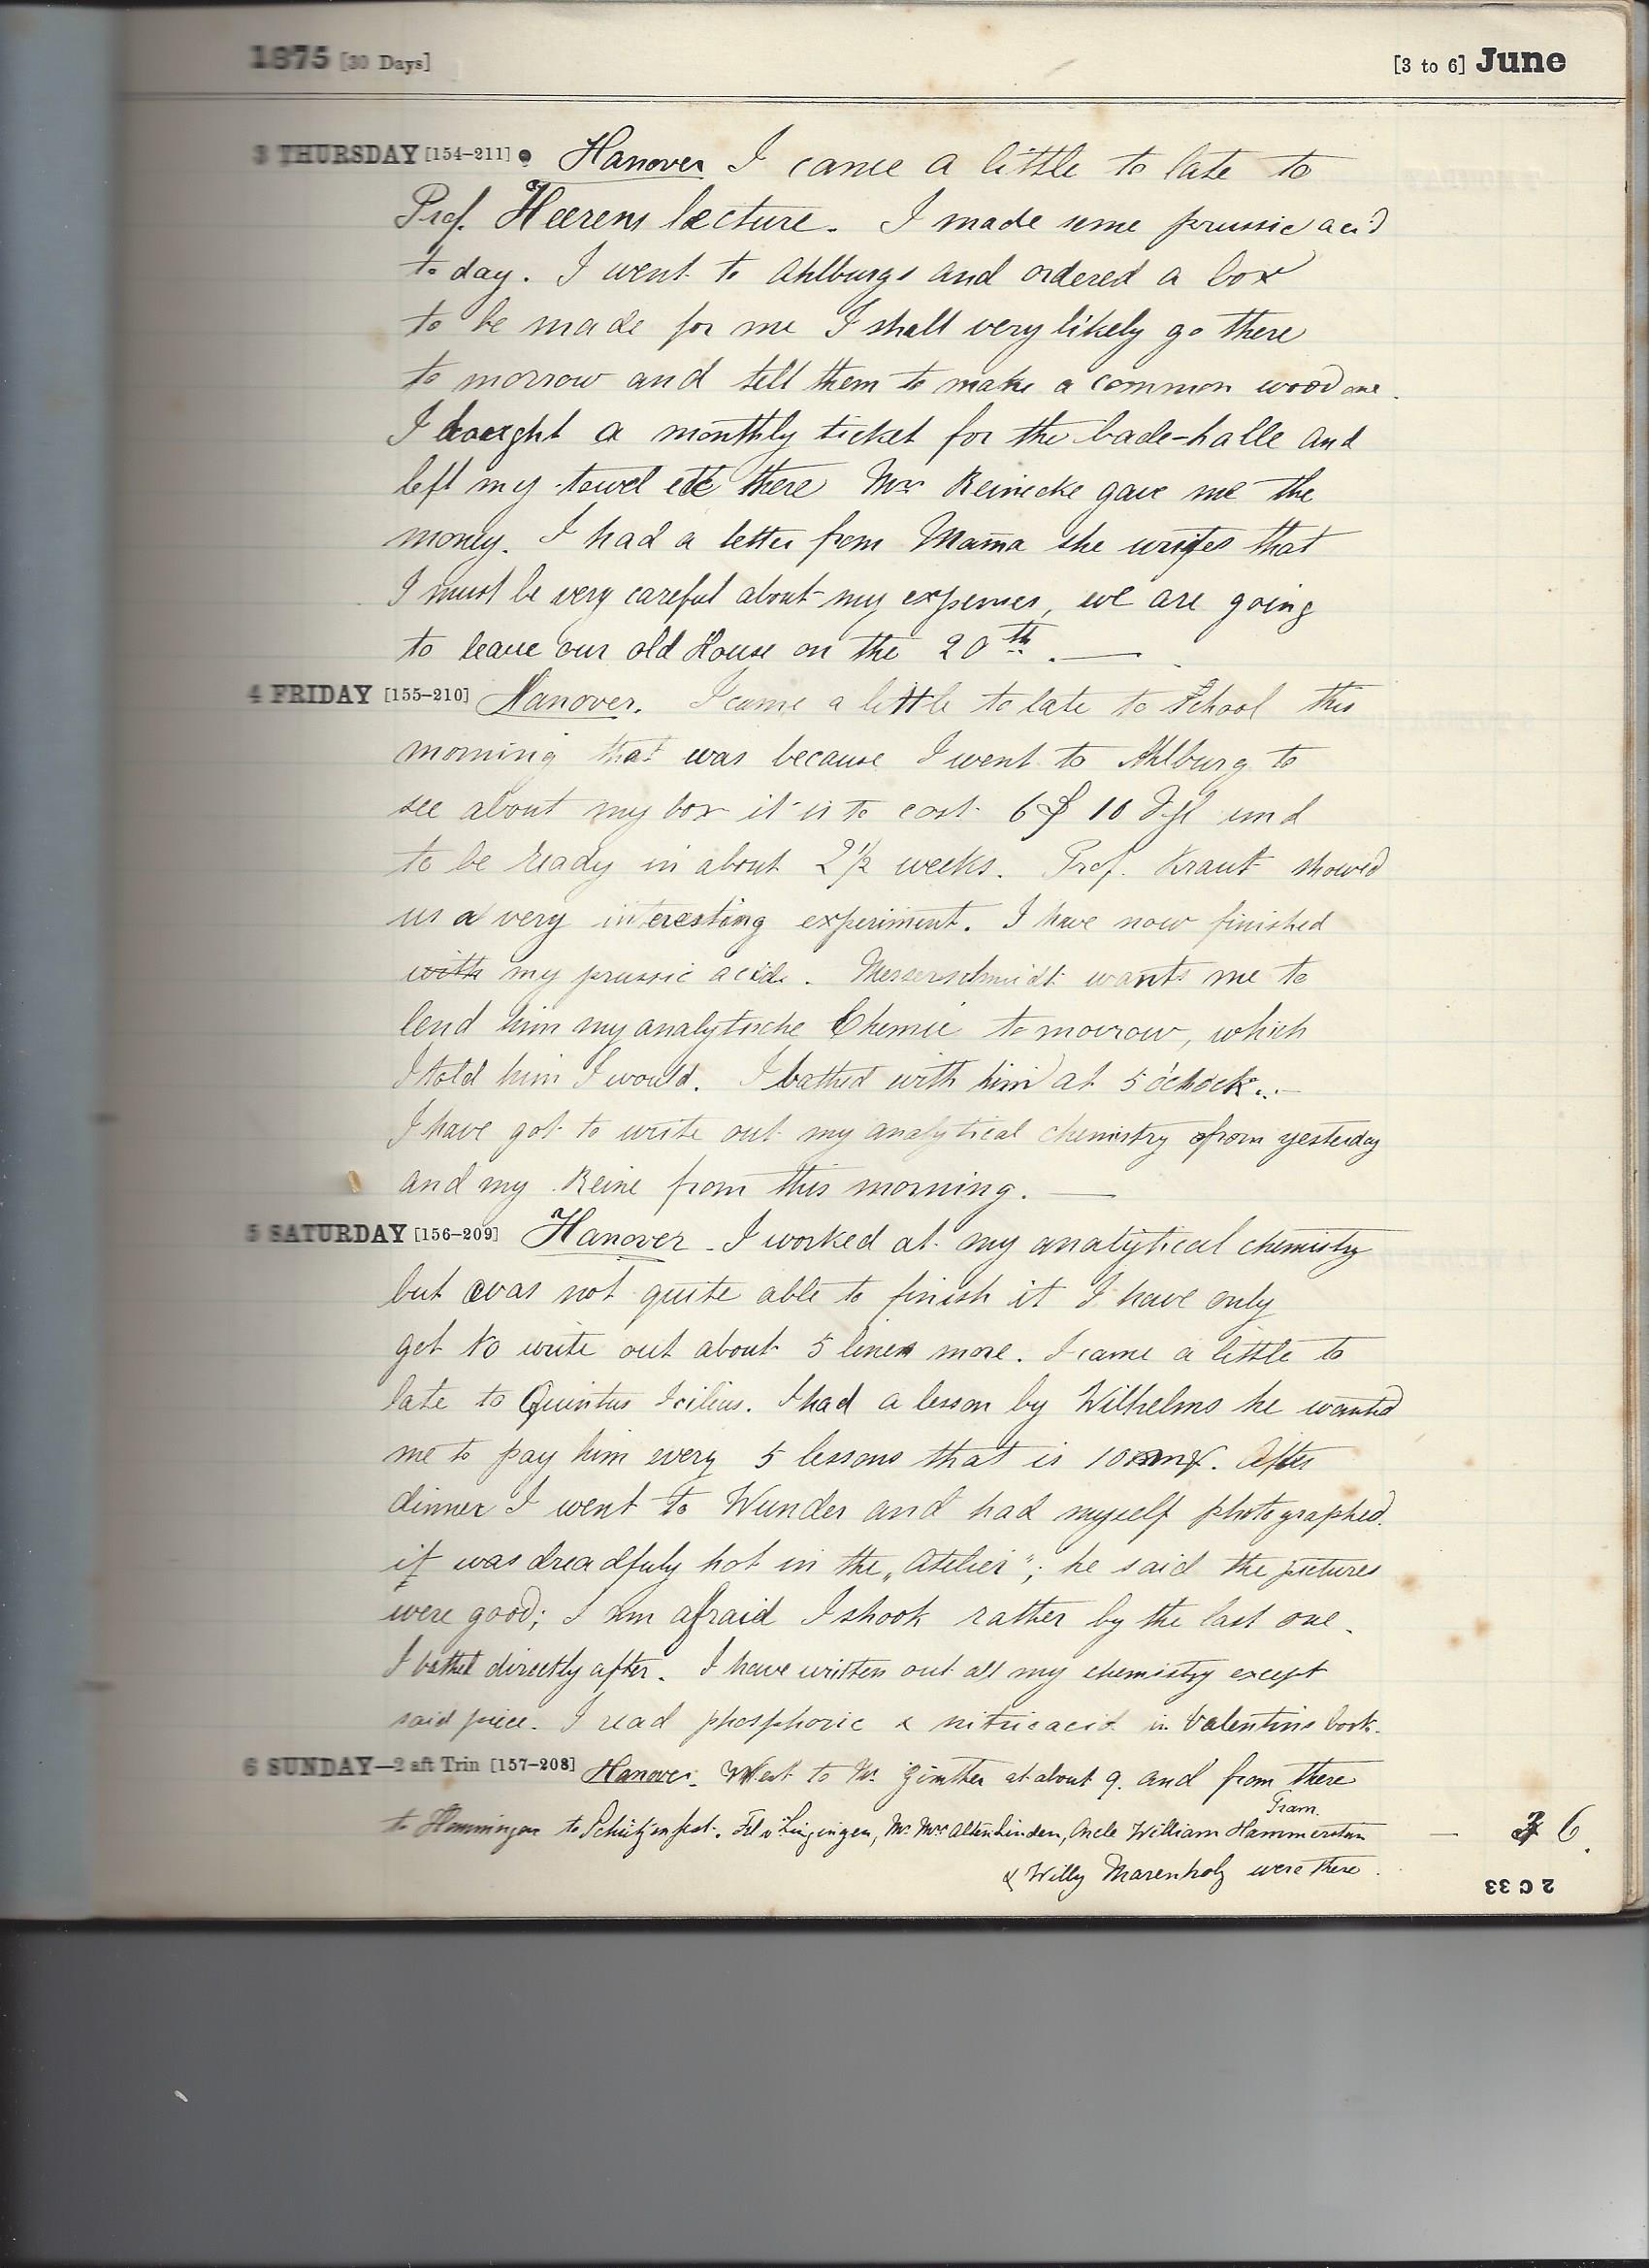 1875 [30 Days] [3 to 6] June
3 THURSDAY [154-211] ● Hanover I came a little to late to
Prof. Heerens lecture. I made some prussic acid
to day. I went to Ahlburgs and ordered a box
to be made for me I shall very likely go there
to morrow and tell them to make a common wood one.
I bought a monthly ticket for the bade-halle and
left my towel etc there Mrs Reinecke gave me the
money. I had a letter from Mama she writes that
I must be very careful about my expenses, we are going
to leave our old House on the 20th. —
4 FRIDAY [155-210] Hanover. I came a little to late to School this
morning that was because I went to Ahlburg to
see about my box it is to cost 6 10 und
to be ready in about 2 1/2 weeks. Prof. Kraut showed
us a very interesting experiment. I have now finished
with my prussic acid. Messerschmidt wants me to
lend him my analytische Chemie to morrow, which
I told him I would. I bathed with him at 5 o'clock.. —
I have got to write out my analytical chemistry from yesterday
and my Reine from this morning. —
5 SATURDAY [156-209] Hanover. I worked at my analytical chemistry
but was not quite able to finish it I have only
got to write out about 5 lines more. I came a little to
late to Quintus Icilius. I had a lesson by Wilhelms he wanted
me to pay him every 5 lessons that is 10. After
dinner I went to Wunder and had myself photographed.
it was dreadfuly hot in the „Atelier"; he said the pictures
were good; I am afraid I shook rather by the last one.
I bathed directly after. I have written out all my chemistry except
said piece. I read phosphoric & nitric acid in Valentins book.
6 SUNDAY—2 aft Trin [157-208] Hanover. Went to Mr. Günther at about 9. and from there
Tram.
to Hemmingen to Schützenfest. Mr Mrs Altenlinden, Oncle William Hammerstein — 6.
& Willy Marenholz were there.
2 C 33